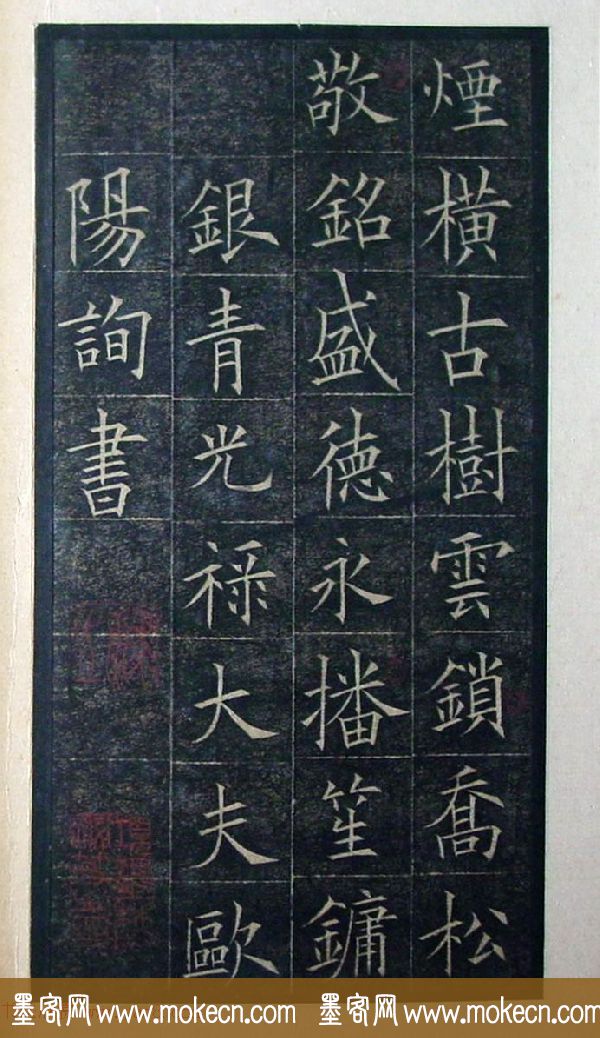 煙橫古樹雲鎖喬松
敬銘盛德永播笙鏞
銀青光祿大夫歐
陽詢書
墨客网 www.mokecn.com 墨客网 www.mokecn.com